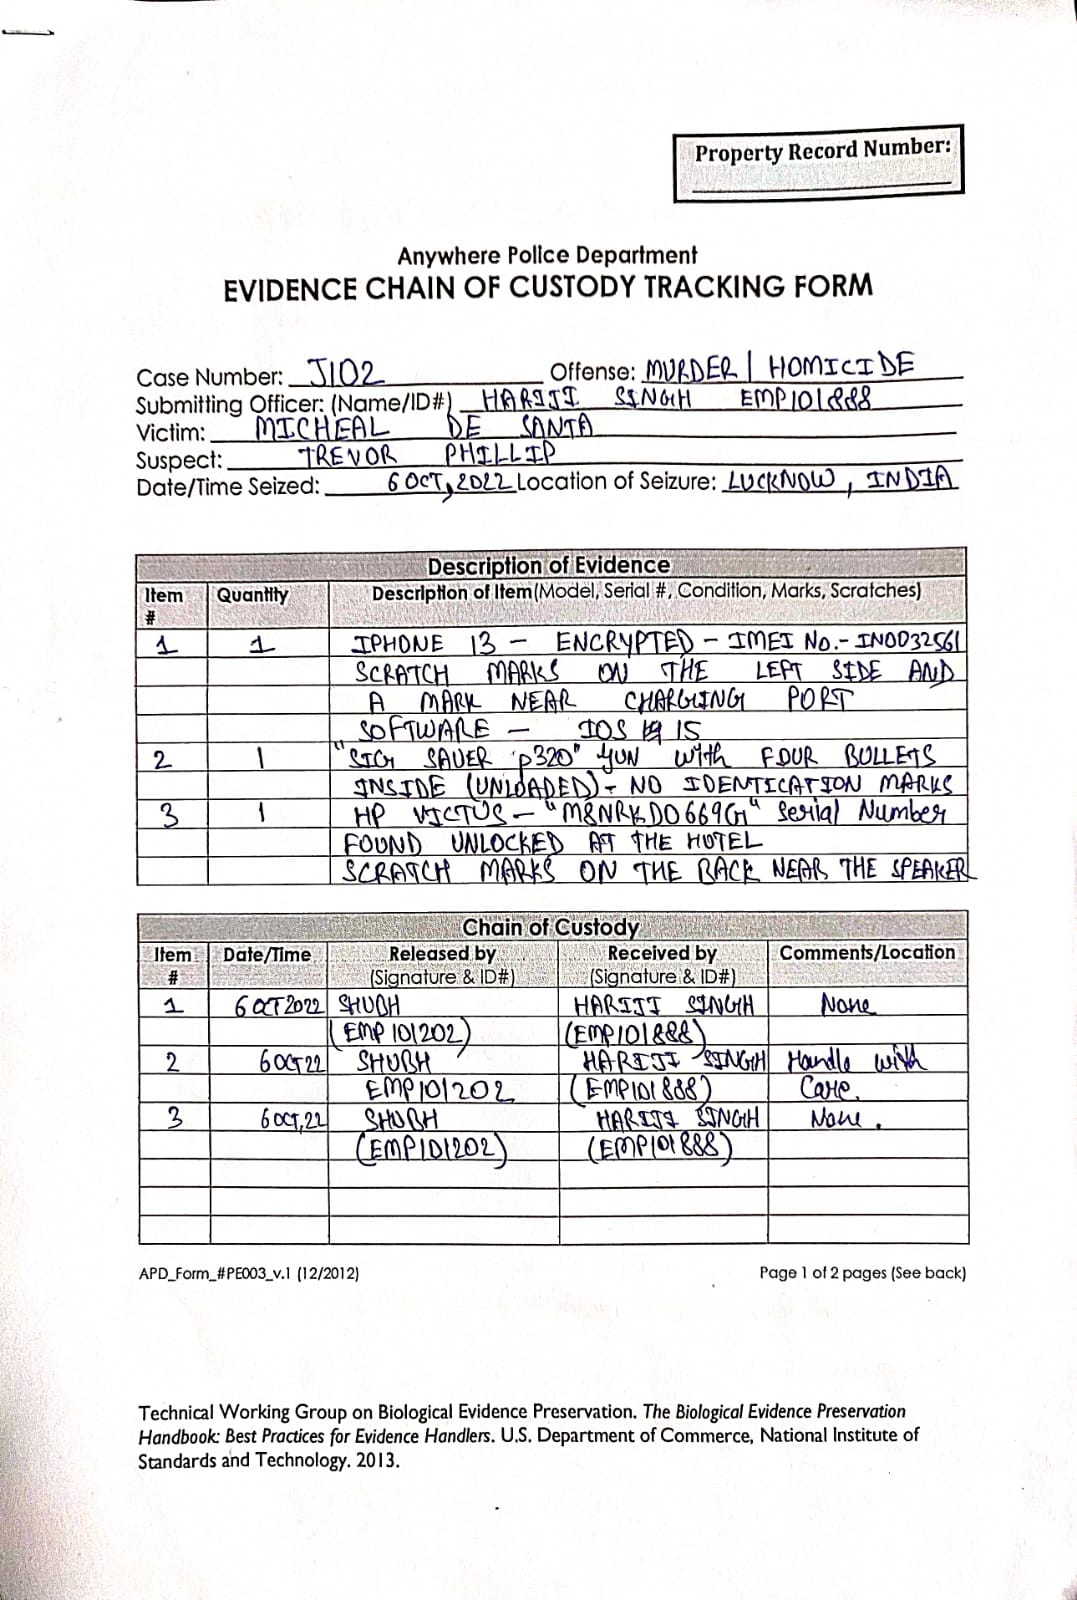 Property Record Number:
Anywhere Police Department
EVIDENCE CHAIN OF CUSTODY TRACKING FORM
Case Number: J102 Offense: MURDER | HOMICIDE
Submitting Officer: (Name/ID#) HARIJI SINGH EMP101888
Victim: MICHEAL DE SANTA
Suspect: TREVOR PHILLIP
Date/Time Seized: 6 OCT, 2022 Location of Seizure: LUCKNOW, INDIA
Description of Evidence
Item # Quantity Description of Item (Model, Serial #, Condition, Marks, Scratches)
1 1 IPHONE 13 - ENCRYPTED - IMEI No. - IN0032561
SCRATCH MARKS ON THE LEFT SIDE AND
A MARK NEAR CHARGING PORT
SOFTWARE - IOS 15
2 1 "SIG SAUER P320" gun with FOUR BULLETS
INSIDE (UNLOADED) - NO IDENTICATION MARKS
3 1 HP VICTUS - "M8NRKD0669G" Serial Number
FOUND UNLOCKED AT THE HOTEL
SCRATCH MARKS ON THE BACK NEAR THE SPEAKER
Chain of Custody
Item # Date/Time Released by (Signature & ID#) Received by (Signature & ID#) Comments/Location
1 6 OCT 2022 SHUBH HARIJI SINGH None
(EMP101202) (EMP101888)
2 6 OCT 22 SHUBH HARIJI SINGH Handle with
EMP101202 (EMP101888) Care.
3 6 OCT, 22 SHUBH HARIJI SINGH None.
(EMP101202) (EMP101888)
APD_Form_#PE003_v.1 (12/2012) Page 1 of 2 pages (See back)
Technical Working Group on Biological Evidence Preservation. The Biological Evidence Preservation
Handbook: Best Practices for Evidence Handlers. U.S. Department of Commerce, National Institute of
Standards and Technology. 2013.